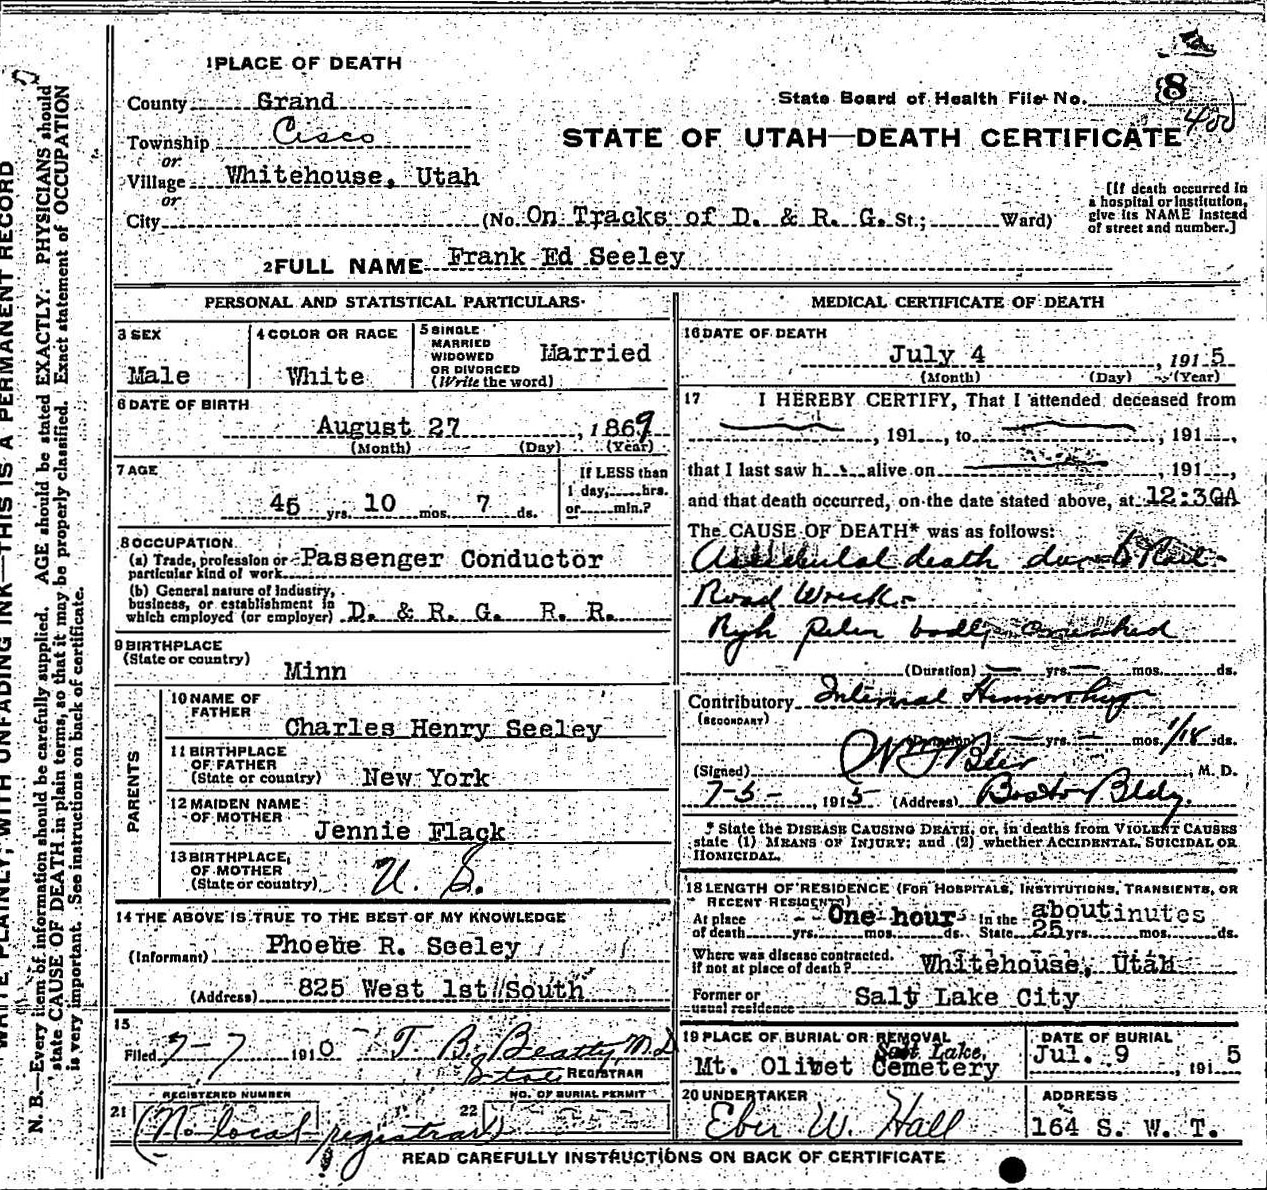 1 PLACE OF DEATH
County Grand
State Board of Health File No. 8
400
Township Cisco
STATE OF UTAH—DEATH CERTIFICATE
or
Village Whitehouse, Utah
or
City (No. On Tracks of D. & R. G. St.; Ward)
[If death occurred in
a hospital or institution,
give its NAME instead
of street and number.]
2 FULL NAME Frank Ed Seeley
PERSONAL AND STATISTICAL PARTICULARS
3 SEX
Male
4 COLOR OR RACE
White
5 SINGLE
MARRIED
WIDOWED
OR DIVORCED
(Write the word)
Married
6 DATE OF BIRTH
August 27, 1869
(Month) (Day) (Year)
7 AGE
45 yrs. 10 mos. 7 ds.
If LESS than
1 day, hrs.
or min.?
8 OCCUPATION
(a) Trade, profession or
particular kind of work Passenger Conductor
(b) General nature of Industry,
business, or establishment in
which employed (or employer) D. & R. G. R. R.
9 BIRTHPLACE
(State or country)
Minn
PARENTS
10 NAME OF
FATHER
Charles Henry Seeley
11 BIRTHPLACE
OF FATHER
(State or country) New York
12 MAIDEN NAME
OF MOTHER
Jennie Flack
13 BIRTHPLACE
OF MOTHER
(State or country) U. S.
14 THE ABOVE IS TRUE TO THE BEST OF MY KNOWLEDGE
(Informant) Phoebe R. Seeley
(Address) 825 West 1st South
15
Filed 7-7 1910 T. B. Beatty, M.D.
State REGISTRAR
REGISTERED NUMBER
21
NO. OF BURIAL PERMIT
22
(No local registrar)
MEDICAL CERTIFICATE OF DEATH
16 DATE OF DEATH
July 4, 1915
(Month) (Day) (Year)
17 I HEREBY CERTIFY, That I attended deceased from
, 191 , to , 191 ,
that I last saw h alive on , 191 ,
and that death occurred, on the date stated above, at 12:30A
The CAUSE OF DEATH* was as follows:
Accidental death due to Rail-
Road Wreck-
badly crushed
(Duration) yrs. mos. ds.
Contributory Internal
(SECONDARY)
(Duration) yrs. mos. 1/18 ds.
(Signed) M. D.
7-5-, 1915 (Address) Boston Bldg.
* State the DISEASE CAUSING DEATH, or, in deaths from VIOLENT CAUSES
state (1) MEANS OF INJURY; and (2) whether ACCIDENTAL, SUICIDAL OR
HOMICIDAL.
18 LENGTH OF RESIDENCE (FOR HOSPITALS, INSTITUTIONS, TRANSIENTS, OR
RECENT RESIDENTS)
At place
of death yrs. mos. ds. One hour
In the
State 25 yrs. mos. ds. about inutes
Where was disease contracted,
if not at place of death? Whitehouse, Utah
Former or
usual residence Salt Lake City
19 PLACE OF BURIAL OR REMOVAL
Salt Lake,
Mt. Olivet Cemetery
DATE OF BURIAL
Jul. 9, 1915
20 UNDERTAKER
Eber W. Hall
ADDRESS
164 S. W. T.
READ CAREFULLY INSTRUCTIONS ON BACK OF CERTIFICATE
WRITE PLAINLY, WITH UNFADING INK—THIS IS A PERMANENT RECORD
N. B.—Every item of information should be carefully supplied. AGE should be stated EXACTLY. PHYSICIANS should
state CAUSE OF DEATH in plain terms, so that it may be properly classified. Exact statement of OCCUPATION
is very important. See instructions on back of certificate.